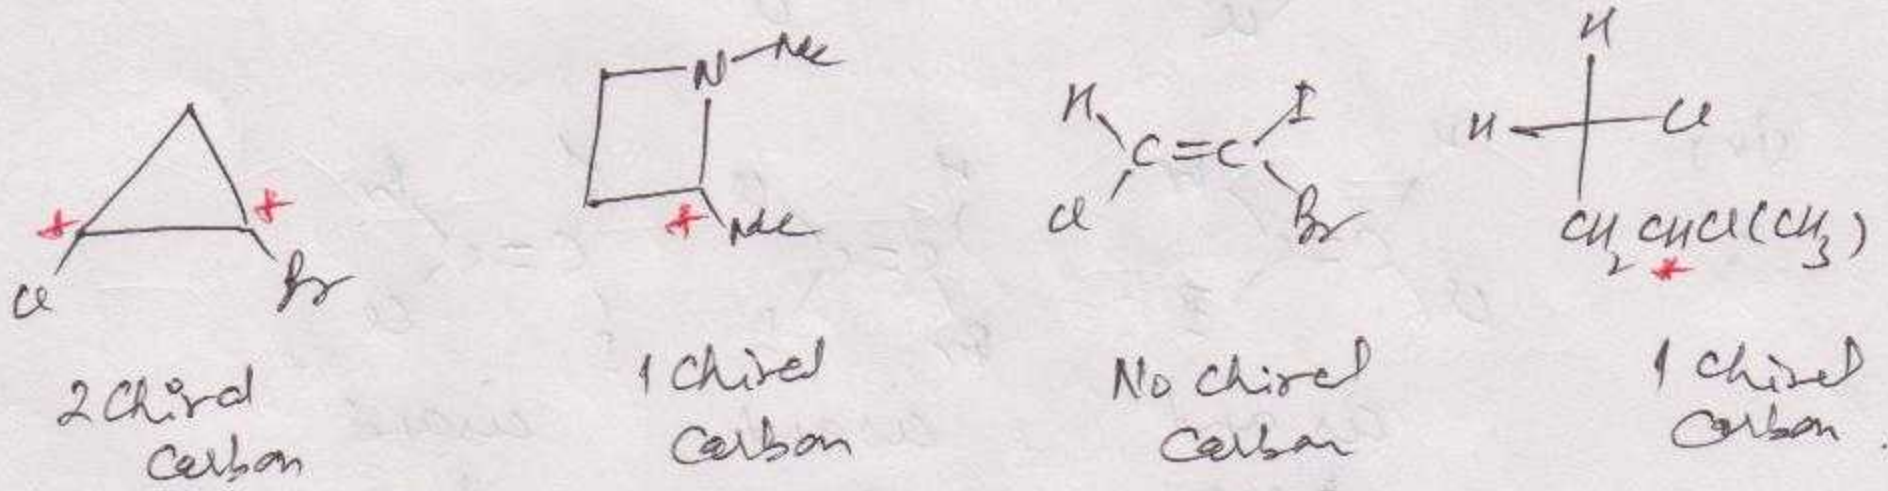 Cl
Br
2 Chiral
Carbon
N Me
Me
1 Chiral
Carbon
H I
C=C
Cl Br
No Chiral
Carbon
H
H Cl
CH2 CHCl(CH3)
1 Chiral
Carbon.